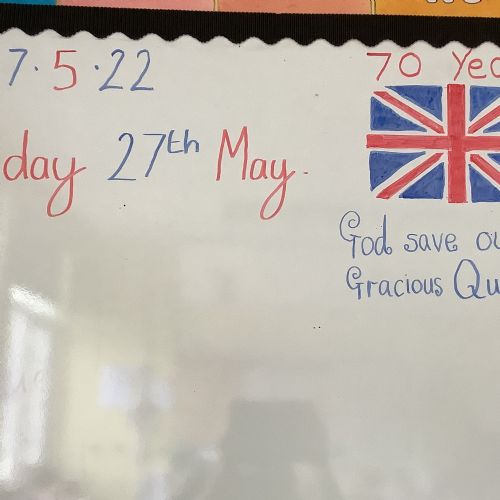 7.5.22
day 27th May.
70 Yea
God save ou
Gracious Qu